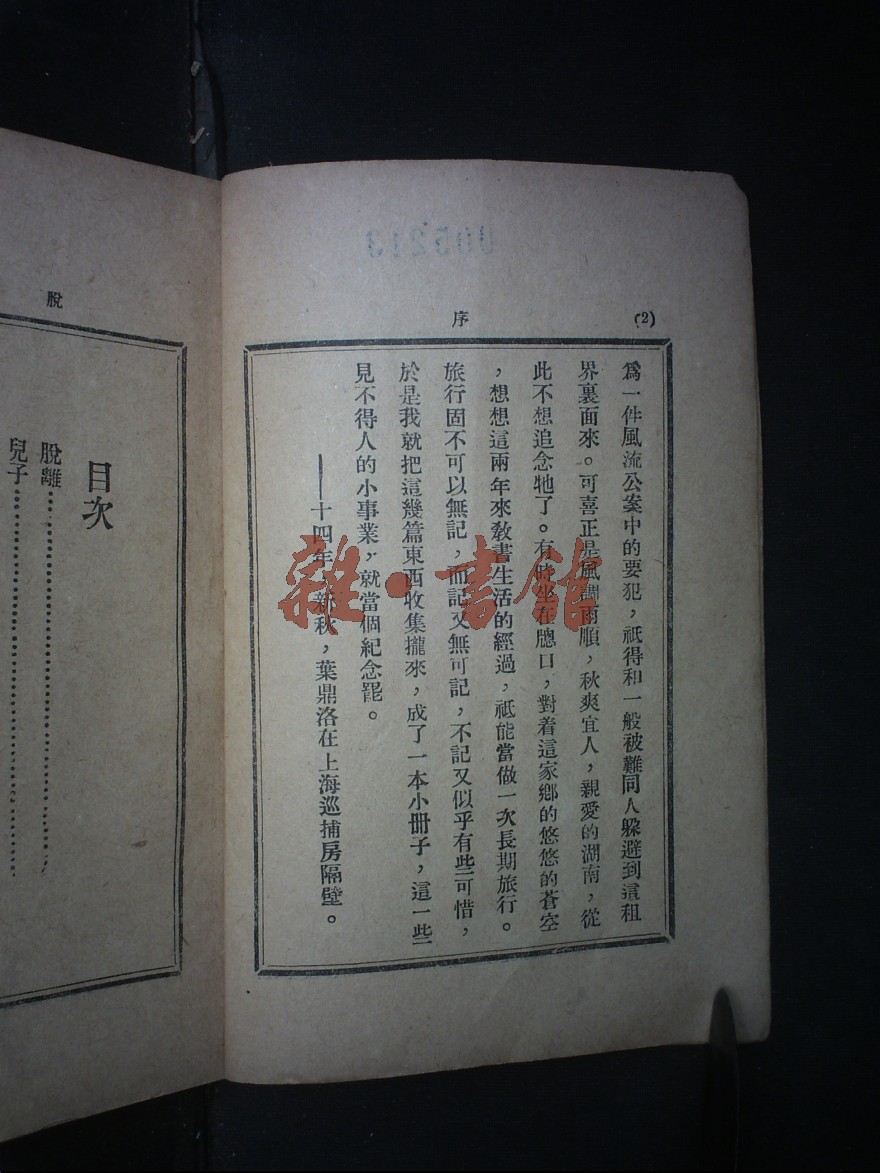 (2)
序
爲一件風流公案中的要犯，祇得和一般被難同人躱避到這租
界裏面來。可喜正是風調雨順，秋爽宜人，親愛的湖南，從
此不想追念牠了。有時坐在牕口，對着這家鄉的悠悠的蒼空
，想想這兩年來敎書生活的經過，祇能當做一次長期旅行。
旅行固不可以無記，而記又無可記，不記又似乎有些可惜，
於是我就把這幾篇東西收集攏來，成了一本小册子，這一些
見不得人的小事業，就當個紀念罷。
——十四年，新秋，葉鼎洛在上海巡捕房隔壁。
脫
目次
脫離
兒子
005213
雜·書館